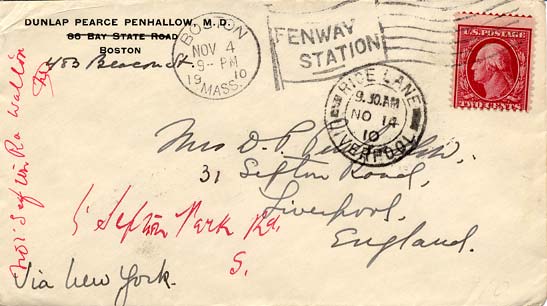 DUNLAP PEARCE PENHALLOW, M.D.
86 BAY STATE ROAD
BOSTON
483 Beacon St.
BOSTON
NOV 4
9 - PM
1910
MASS.
FENWAY
STATION
U.S. POSTAGE
TWO CENTS 2
RICE LANE
9.30 AM
NO 14
10
LIVERPOOL
Mrs D. P. Penhallow,
31 Sefton Road,
Liverpool,
England.
5 Sefton Park Rd
S.
Via New York.
Not Sefton Rd Walton